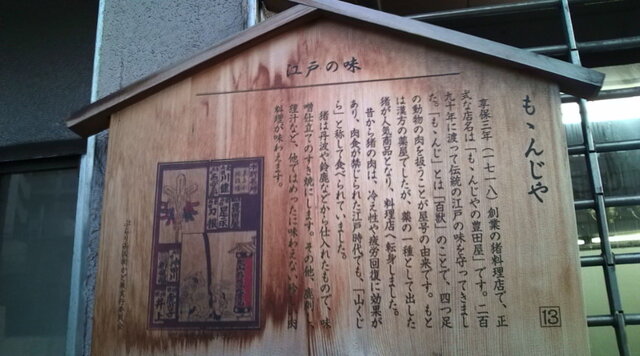 江戸の味
も〻んじや
享保三年（一七一八）創業の猪料理店で、正
式な店名は「も〻んじやの豊田屋」です。二百
九十年に渡って伝統の江戸の味を守ってきまし
た。「も〻んじ」とは「百獣」のことで、四つ足
の動物の肉を扱うことが屋号の由来です。もと
は漢方の薬屋でしたが、薬の一種として出した
猪が人気商品となり、料理店に転身しました。
昔から猪の肉は、冷え性や疲労回復に効果が
あり、肉食が禁じられた江戸時代でも、「山くじ
ら」と称して食べられていました。
猪は丹波や鈴鹿などから仕入れたもので、味
噌仕立てのすき焼にします。その他、鹿刺し、
狸汁など、他ではめったに味わえない
料理が味わえます。
13